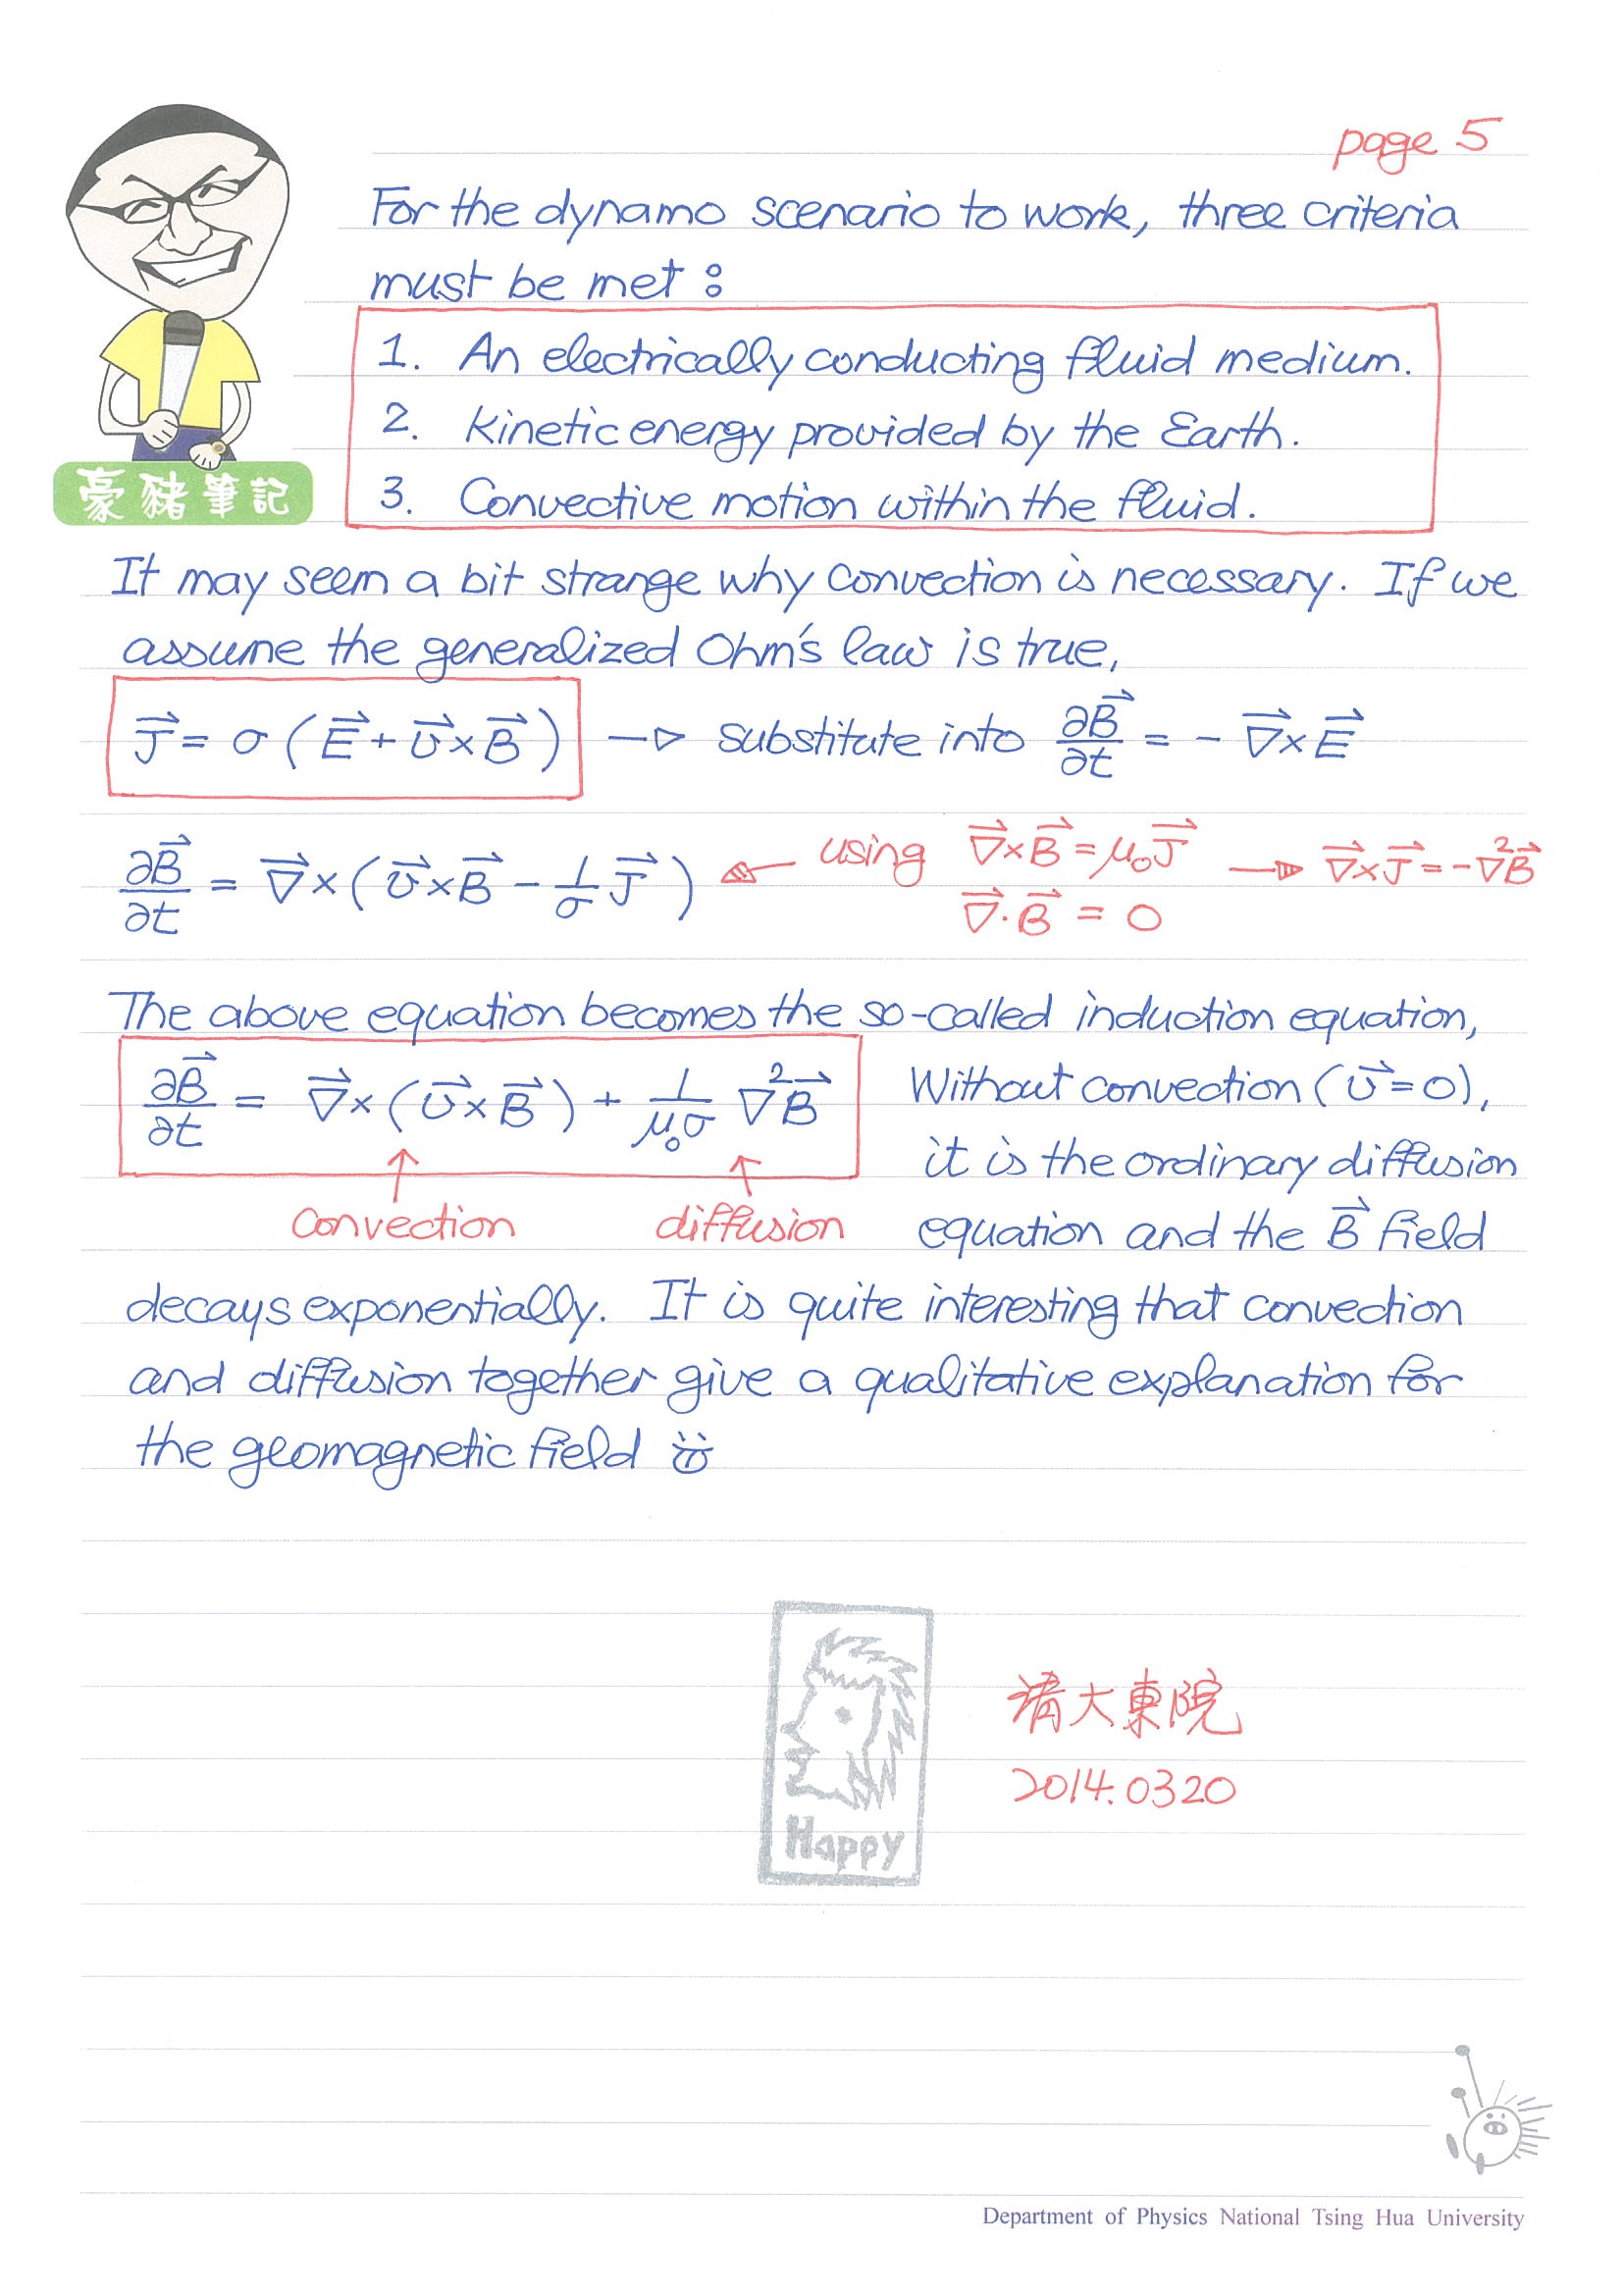 page 5
For the dynamo scenario to work, three criteria
must be met :
1. An electrically conducting fluid medium.
2. Kinetic energy provided by the Earth.
3. Convective motion within the fluid.
豪豬筆記
It may seem a bit strange why convection is necessary. If we
assume the generalized Ohm's law is true,
J⃗ = σ ( E⃗ + v⃗ × B⃗ ) → substitute into ∂B⃗/∂t = - ∇⃗ × E⃗
∂B⃗/∂t = ∇⃗ × ( v⃗ × B⃗ - 1/σ J⃗ ) ← using ∇⃗ × B⃗ = μ₀J⃗ → ∇⃗ × J⃗ = -∇²B⃗
∇⃗ · B⃗ = 0
The above equation becomes the so-called induction equation,
∂B⃗/∂t = ∇⃗ × ( v⃗ × B⃗ ) + 1/μ₀σ ∇²B⃗
convection diffusion
Without convection ( v⃗ = 0 ),
it is the ordinary diffusion
equation and the B⃗ field
decays exponentially. It is quite interesting that convection
and diffusion together give a qualitative explanation for
the geomagnetic field
Happy
清大東院
2014.0320
Department of Physics National Tsing Hua University